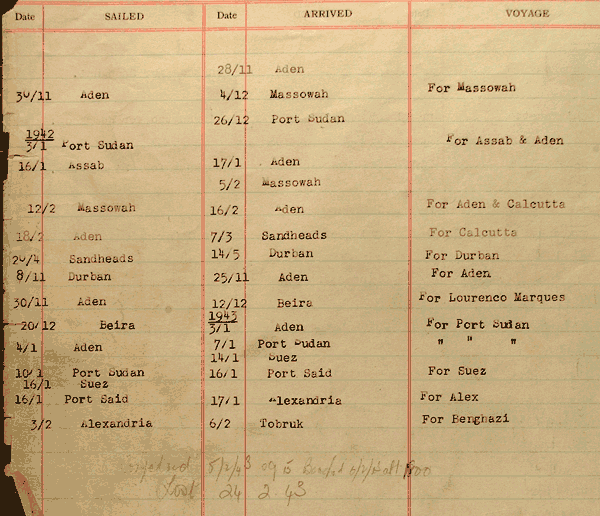 Date SAILED Date ARRIVED VOYAGE
28/11 Aden
30/11 Aden 4/12 Massowah For Massowah
26/12 Port Sudan
1942
3/1 Port Sudan For Assab & Aden
16/1 Assab 17/1 Aden
5/2 Massowah
12/2 Massowah 16/2 Aden For Aden & Calcutta
18/2 Aden 7/3 Sandheads For Calcutta
20/4 Sandheads 14/5 Durban For Durban
8/11 Durban 25/11 Aden For Aden
30/11 Aden 12/12 Beira For Lourenco Marques
1943
20/12 Beira 3/1 Aden For Port Sudan
4/1 Aden 7/1 Port Sudan " " "
14/1 Suez
10/1 Port Sudan 16/1 Port Said For Suez
16/1 Suez
16/1 Port Said 17/1 Alexandria For Alex
3/2 Alexandria 6/2 Tobruk For Benghazi
5/2/43
Lost 24 2 43